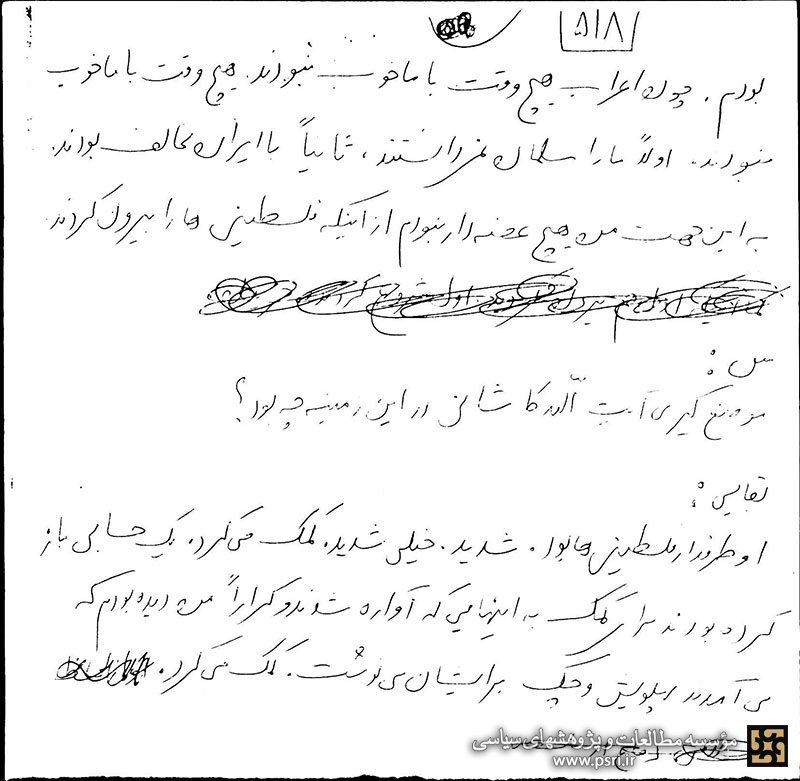 ۵/۸
بودم. چون اعراب هیچ وقت با ما خوب نبودند. هیچ وقت با ما خوب
نبودند. اولاً ما را مسلمان نمی‌دانستند، ثانیاً با ایران مخالف بودند.
به این جهت من هیچ غصه‌دار نبودم از اینکه فلسطینی‌ها را بیرون کردند.
س:
موضع‌گیری آیت‌الله کاشانی در این زمینه چه بود؟
بقایی:
او طرفدار فلسطینی‌ها بود. شدید. خیلی شدید. کمک می‌کرد. یک حسابی باز
کرده بودند برای کمک به اینهایی که آواره شدند و کراراً من دیده بودم که
می‌آمدند پیلویش و چک برایشان می‌نوشت. کمک می‌کرد.
مؤسسه مطالعات و پژوهشهای سیاسی
www.psri.ir